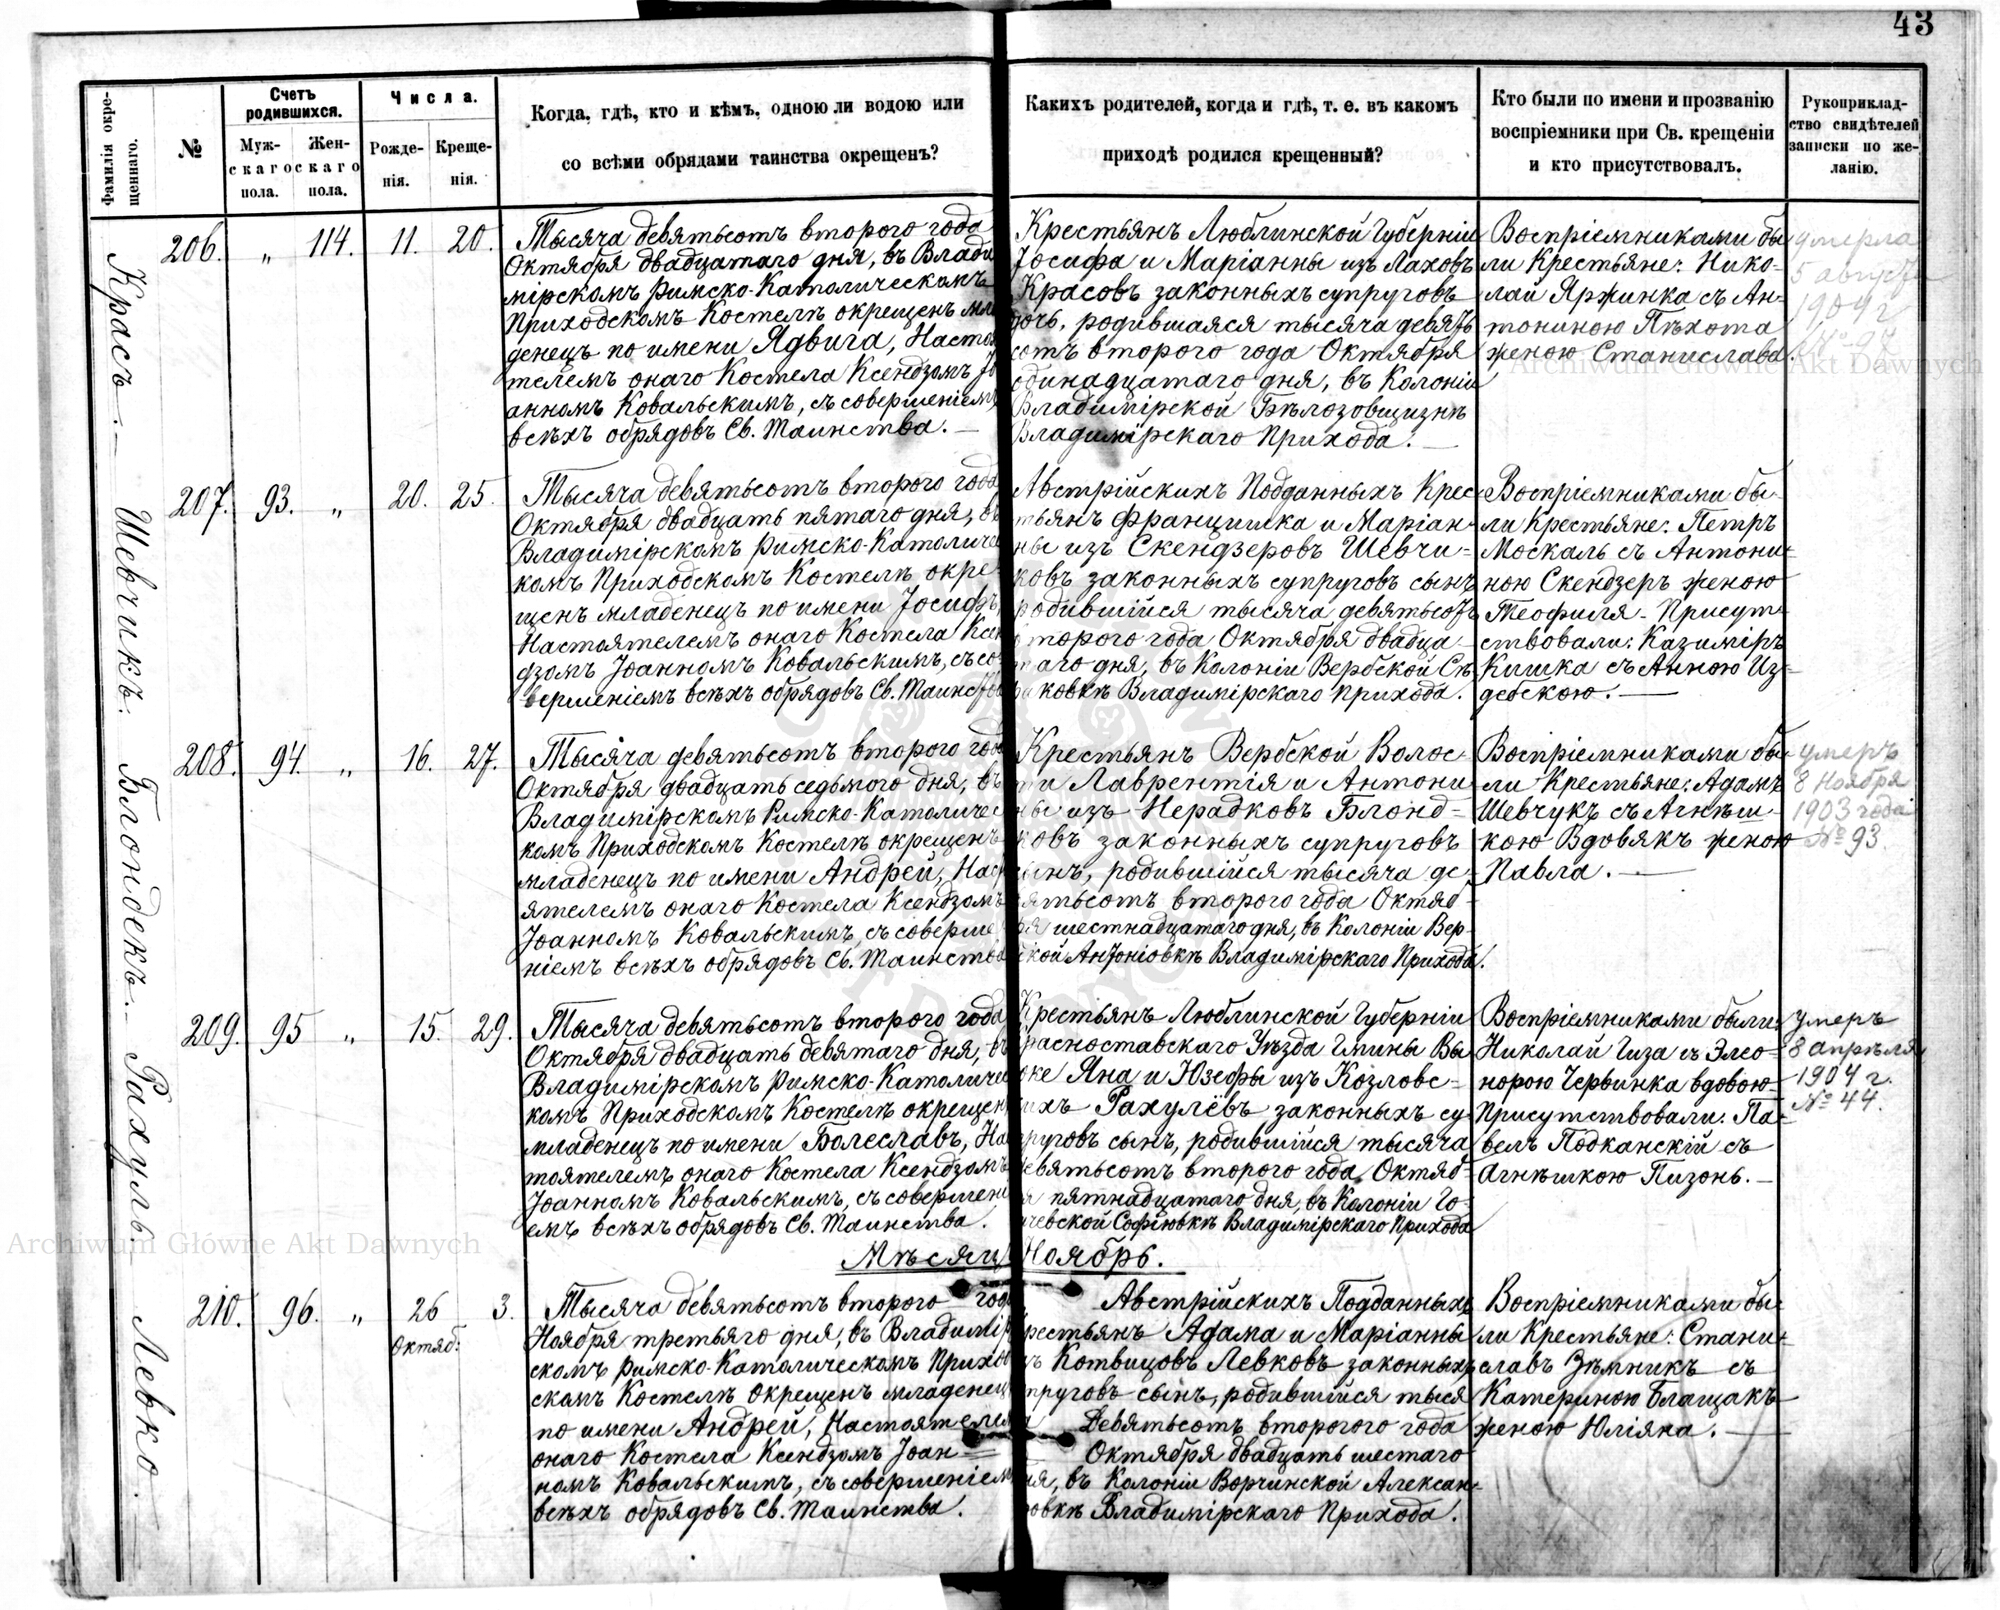 43
Фамилія окре-
щеннаго.
№
Счетъ
родившихся.
Муж-
скаго
пола.
Жен-
скаго
пола.
Числа.
Рожде-
нія.
Креще-
нія.
Когда, гдѣ, кто и кѣмъ, одною ли водою или
со всѣми обрядами таинства окрещенъ?
Какихъ родителей, когда и гдѣ, т. е. въ какомъ
приходѣ родился крещенный?
Кто были по имени и прозванію
воспріемники при Св. крещеніи
и кто присутствовалъ.
Рукоприклад-
ство свидѣтелей
записки по же-
ланію.
Красъ.
206. „ 114. 11. 20.
Тысяча девятьсотъ второго года
Октября двадцатаго дня, въ Влади
мірскомъ Римско-Католическомъ
Приходскомъ Костелѣ окрещенъ мла
денецъ по имени Ядвига, Настоя
телемъ онаго Костела Ксендзомъ Іо
анномъ Ковальскимъ, съ совершеніемъ
всѣхъ обрядовъ Св. Таинства. —
Крестьянъ Люблинской Губерніи
Іосифа и Маріанны изъ Лаховъ
Красовъ законныхъ супруговъ
дочь, родившаяся тысяча девять
сотъ второго года Октября
одинадцатаго дня, въ Колоніи
Владимірской Бѣлозовщизнѣ
Владимірскаго Прихода. —
Воспріемниками бы
ли Крестьяне: Нико-
лай Яржинка съ Ан-
тониною Пѣхота
женою Станислава.
умерла
5 августа
1904 г
№ 94
Шевчикъ.
207. 93. „ 20. 25.
Тысяча девятьсотъ второго года
Октября двадцать пятаго дня, въ
Владимірскомъ Римско-Католичес
комъ Приходскомъ Костелѣ окре-
щенъ младенецъ по имени Іосифъ,
Настоятелемъ онаго Костела Ксен
дзомъ Іоанномъ Ковальскимъ, съ со-
вершеніемъ всѣхъ обрядовъ Св. Таинства
Австрійскихъ Подданныхъ Крес-
тьянъ Францишка и Маріан-
ны изъ Скендзеровъ Шевчи-
ковъ законныхъ супруговъ сынъ
родившійся тысяча девятьсотъ
второго года Октября двадца-
таго дня, въ Колоніи Вербской Сѣ
ковкѣ Владимірскаго Прихода.
Воспріемниками бы-
ли Крестьяне: Петръ
Москаль съ Антони-
ною Скендзеръ женою
Теофиля. Присут-
ствовали: Казиміръ
Кишка съ Анною Из-
дебскою. —
Блондекъ.
208. 94. „ 16. 27.
Тысяча девятьсотъ второго года
Октября двадцать седьмого дня, въ
Владимірскомъ Римско-Католичес
комъ Приходскомъ Костелѣ окрещенъ
младенецъ по имени Андрей, Наст
ятелемъ онаго Костела Ксендзомъ
Іоанномъ Ковальскимъ, съ соверше
ніемъ всѣхъ обрядовъ Св. Таинства
Крестьянъ Вербской Волос-
ти Лаврентія и Антони
ны изъ Нерадковъ Блонд-
ковъ законныхъ супруговъ
сынъ, родившійся тысяча де-
вятьсотъ второго года Октяб-
ря шестнадцатаго дня, въ Колоніи Вер-
бской Антоніовкѣ Владимірскаго Прихода.
Воспріемниками бы-
ли Крестьяне: Адамъ
Шевчукъ съ Агнѣш-
кою Вдовякъ женою
Павла. —
умеръ
8 Ноября
1903 года
№ 93.
Рахуль.
209. 95 „ 15. 29.
Тысяча девятьсотъ второго года
Октября двадцать девятаго дня, въ
Владимірскомъ Римско-Католичес
комъ Приходскомъ Костелѣ окрещенъ
младенецъ по имени Болеславъ, Нас
тоятелемъ онаго Костела Ксендзомъ
Іоанномъ Ковальскимъ, съ совершені
емъ всѣхъ обрядовъ Св. Таинства.
Крестьянъ Люблинской Губерніи
Красноставскаго Уѣзда Гмины Вы
оке Яна и Юзефы изъ Козловс-
кихъ Рахулёвъ законныхъ су-
пруговъ сынъ, родившійся тысяча
девятьсотъ второго года Октяб-
ря пятнадцатаго дня, въ Колоніи Го-
чевской Софіювкѣ Владимірскаго Прихода
Воспріемниками были:
Николай Гиза съ Элео-
норою Червинка вдовою-
Присутствовали: Па-
велъ Подканскій съ
Агнѣшкою Пизонь. —
умеръ
8 апрѣля
1904 г.
№ 44.
Мѣсяцъ Ноябрь.
Левко.
210. 96. „ 26 3.
Октяб:
Тысяча девятьсотъ второго года
Ноября третьяго дня, въ Владимір
скомъ Римско-Католическомъ Приход
скомъ Костелѣ окрещенъ младенецъ
по имени Андрей, Настоятелемъ
онаго Костела Ксендзомъ Іоан-
номъ Ковальскимъ, съ совершеніемъ
всѣхъ обрядовъ Св. Таинства.
Австрійскихъ Подданныхъ
Крестьянъ Адама и Маріанны
изъ Котвицовъ Левковъ законныхъ
супруговъ сынъ, родившійся тыся
Девятьсотъ второго года
Октября двадцать шестаго
дня, въ Колоніи Ворчинской Алексан-
ровкѣ Владимірскаго Прихода.
Воспріемниками бы-
ли Крестьяне: Стани-
славъ Зѣмникъ съ
Катериною Блащакъ
женою Юліяна. —
Archiwum Główne Akt Dawnych
Archiwum Główne Akt Dawnych